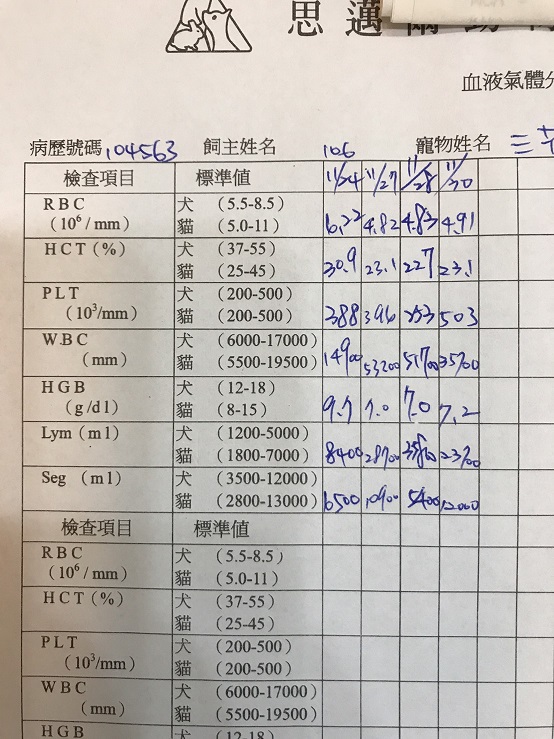 思邁爾動
血液氣體分
病歷號碼 104563 飼主姓名 寵物姓名 三
106
檢查項目 標準值 11/24 11/27 11/28 11/30
RBC 犬 (5.5-8.5)
(10⁶/mm) 貓 (5.0-11) 6.22 4.82 4.83 4.91
HCT(%) 犬 (37-55)
貓 (25-45) 30.9 23.1 22.7 23.1
PLT 犬 (200-500)
(10³/mm) 貓 (200-500) 388 396 503
WBC 犬 (6000-17000)
(mm) 貓 (5500-19500) 14900 53200 51700 35700
HGB 犬 (12-18)
(g/dl) 貓 (8-15) 9.7 7.0 7.0 7.2
Lym (ml) 犬 (1200-5000)
貓 (1800-7000) 8400 28700
Seg (ml) 犬 (3500-12000)
貓 (2800-13000) 6500 10900 5400 12000
檢查項目 標準值
RBC 犬 (5.5-8.5)
(10⁶/mm) 貓 (5.0-11)
HCT(%) 犬 (37-55)
貓 (25-45)
PLT 犬 (200-500)
(10³/mm) 貓 (200-500)
WBC 犬 (6000-17000)
(mm) 貓 (5500-19500)
HGB 犬 (12-18)